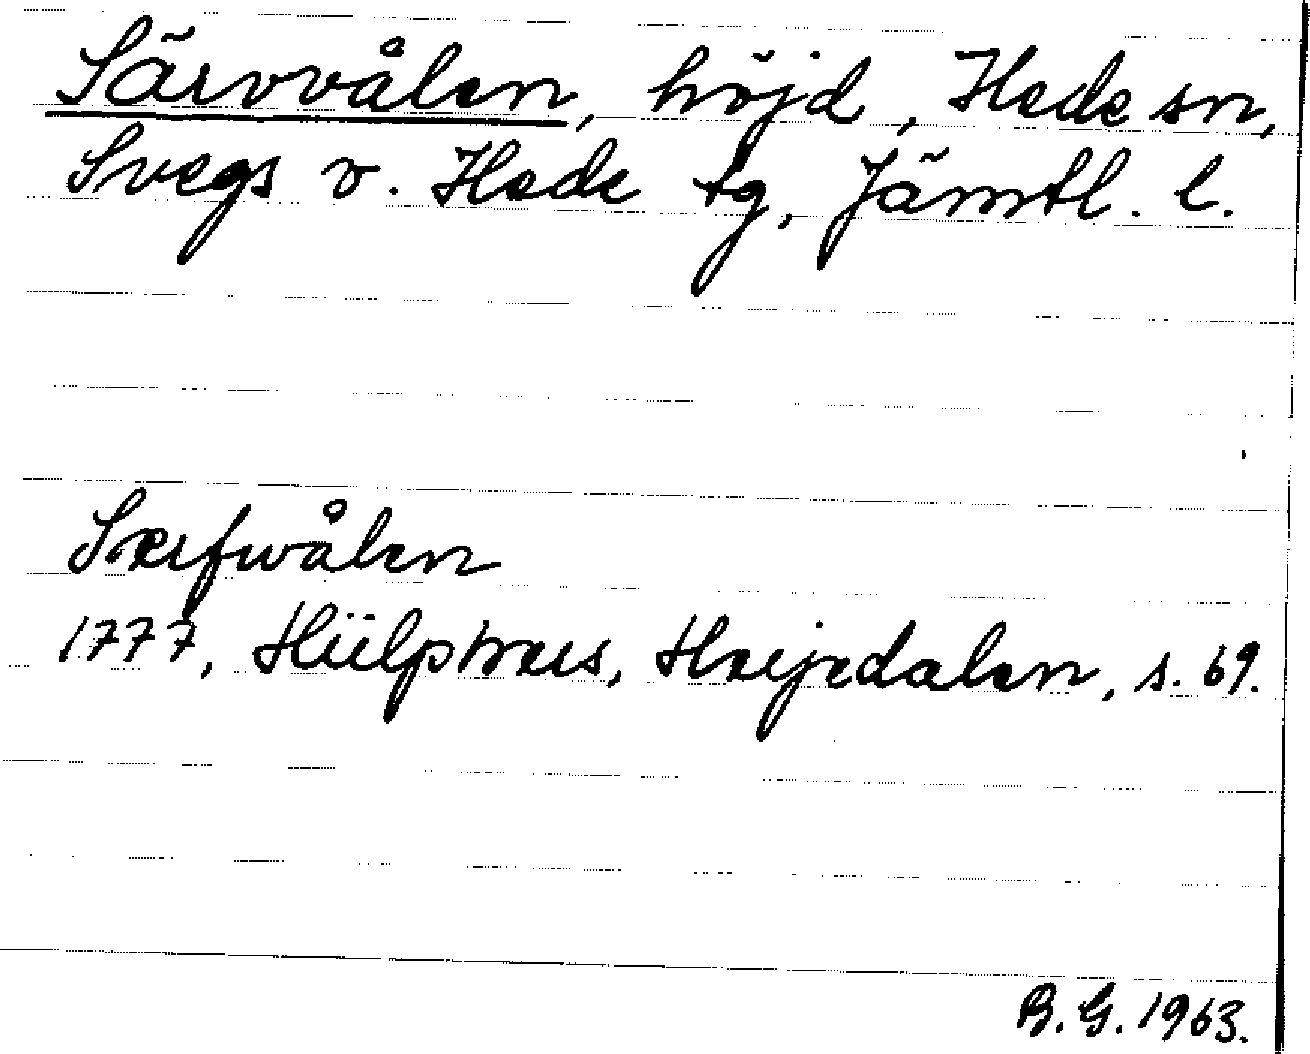 Särvvålen, höjd, Hede sn,
Svegs o. Hede tg, Jämtl. l.
Særfwålen
1777, Hülphers, Hærjedalen, s. 69.
B. G. 1963.